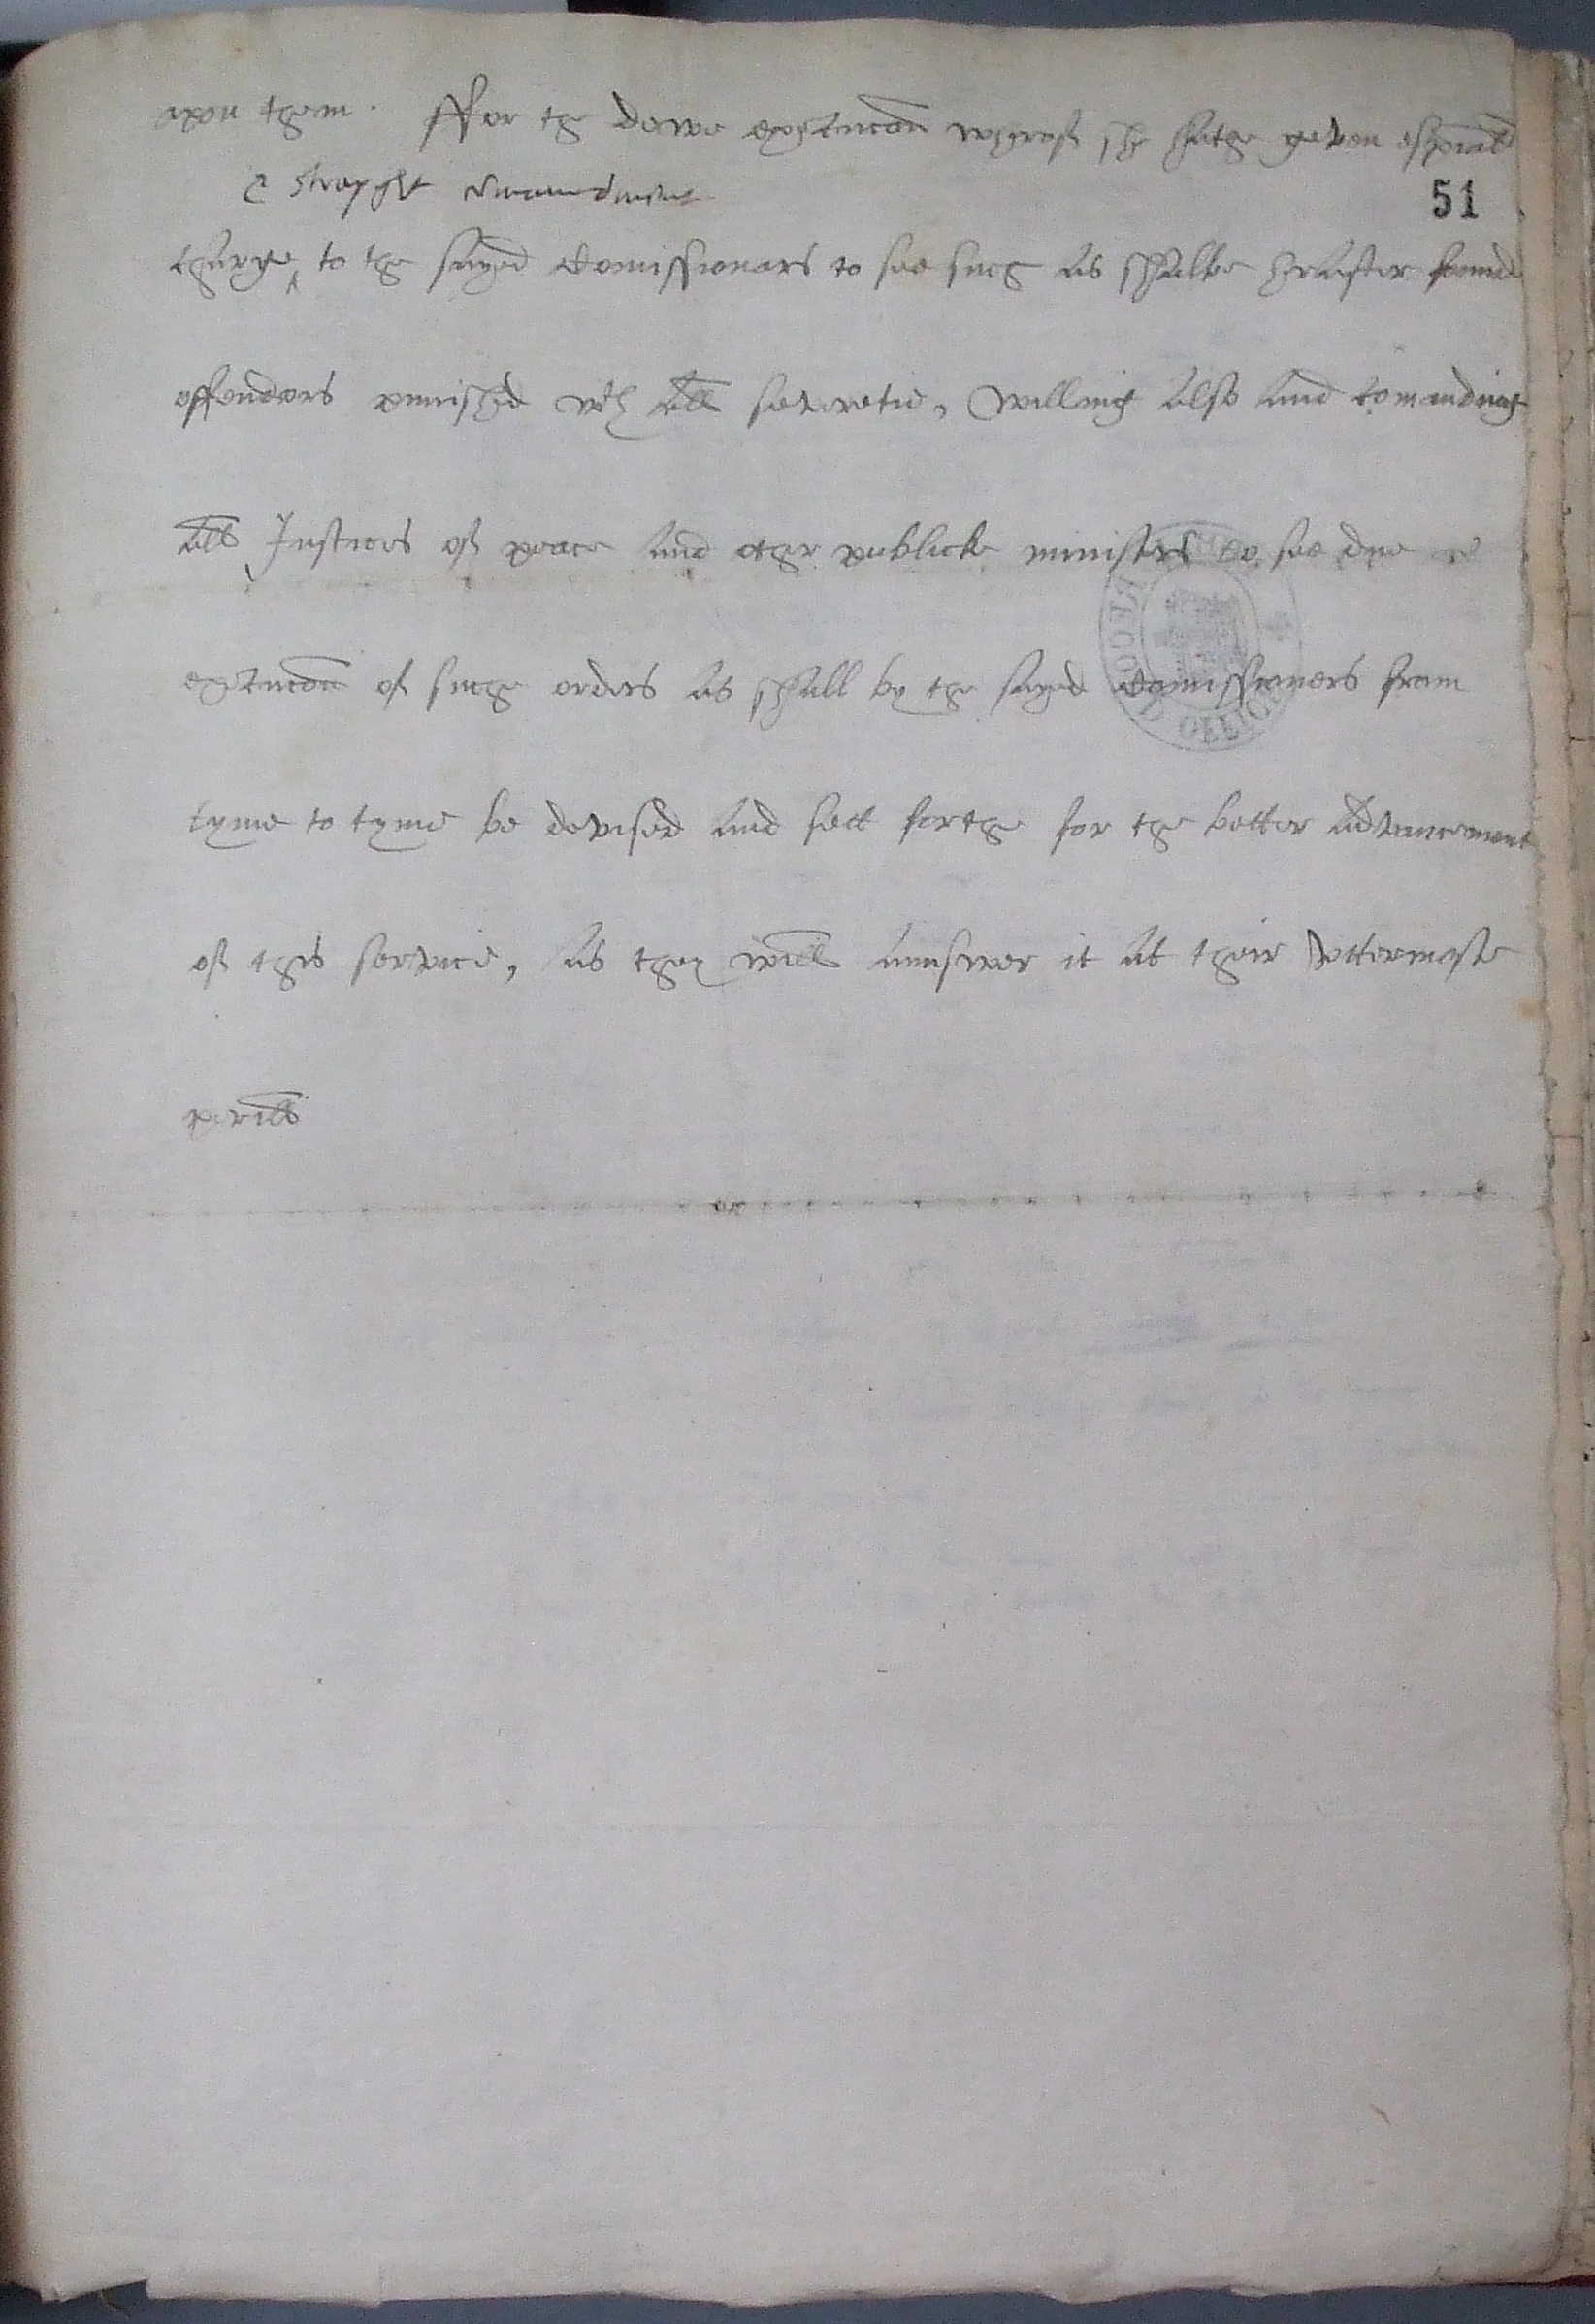 upon them. ffor the dewe execucon wherof she hathe geven especiall
& strayght commandment
51
charge to the sayed Comissionars to see such as shalbe herafter founde
offendors punished wth all severetie, Willing also and comanding
all Justices of peace and other publicke ministers to see due
execucon of suche orders as shall by the sayed Comissioners from
tyme to tyme be devised and sett forthe for the better advauncement
of this service, as they will aunswer it at their uttermoste
perills